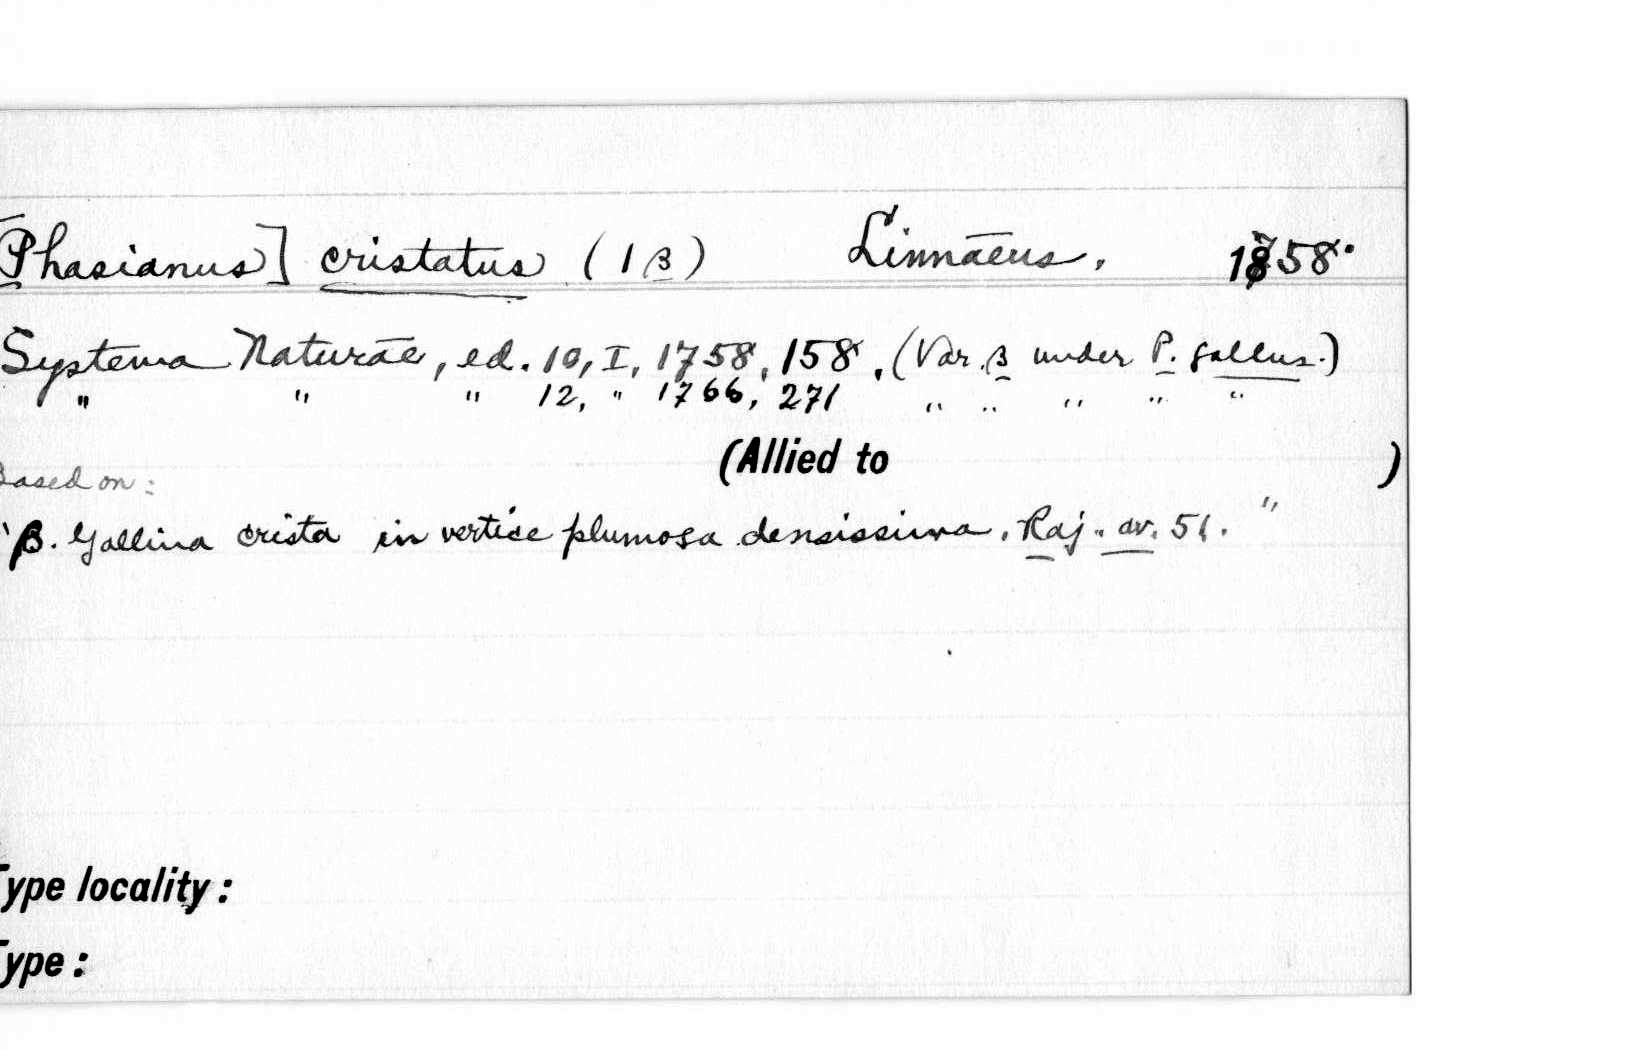 [Phasianus] cristatus (1β) Linnaeus. 1758.
Systema Naturae, ed. 10, I, 1758, 158. (Var. β under P. gallus.)
" " " 12, " 1766, 271 " " " " "
(Allied to )
Based on:
"β. Gallina crista in vertice plumosa densissima. Raj. av. 51."
Type locality:
Type: